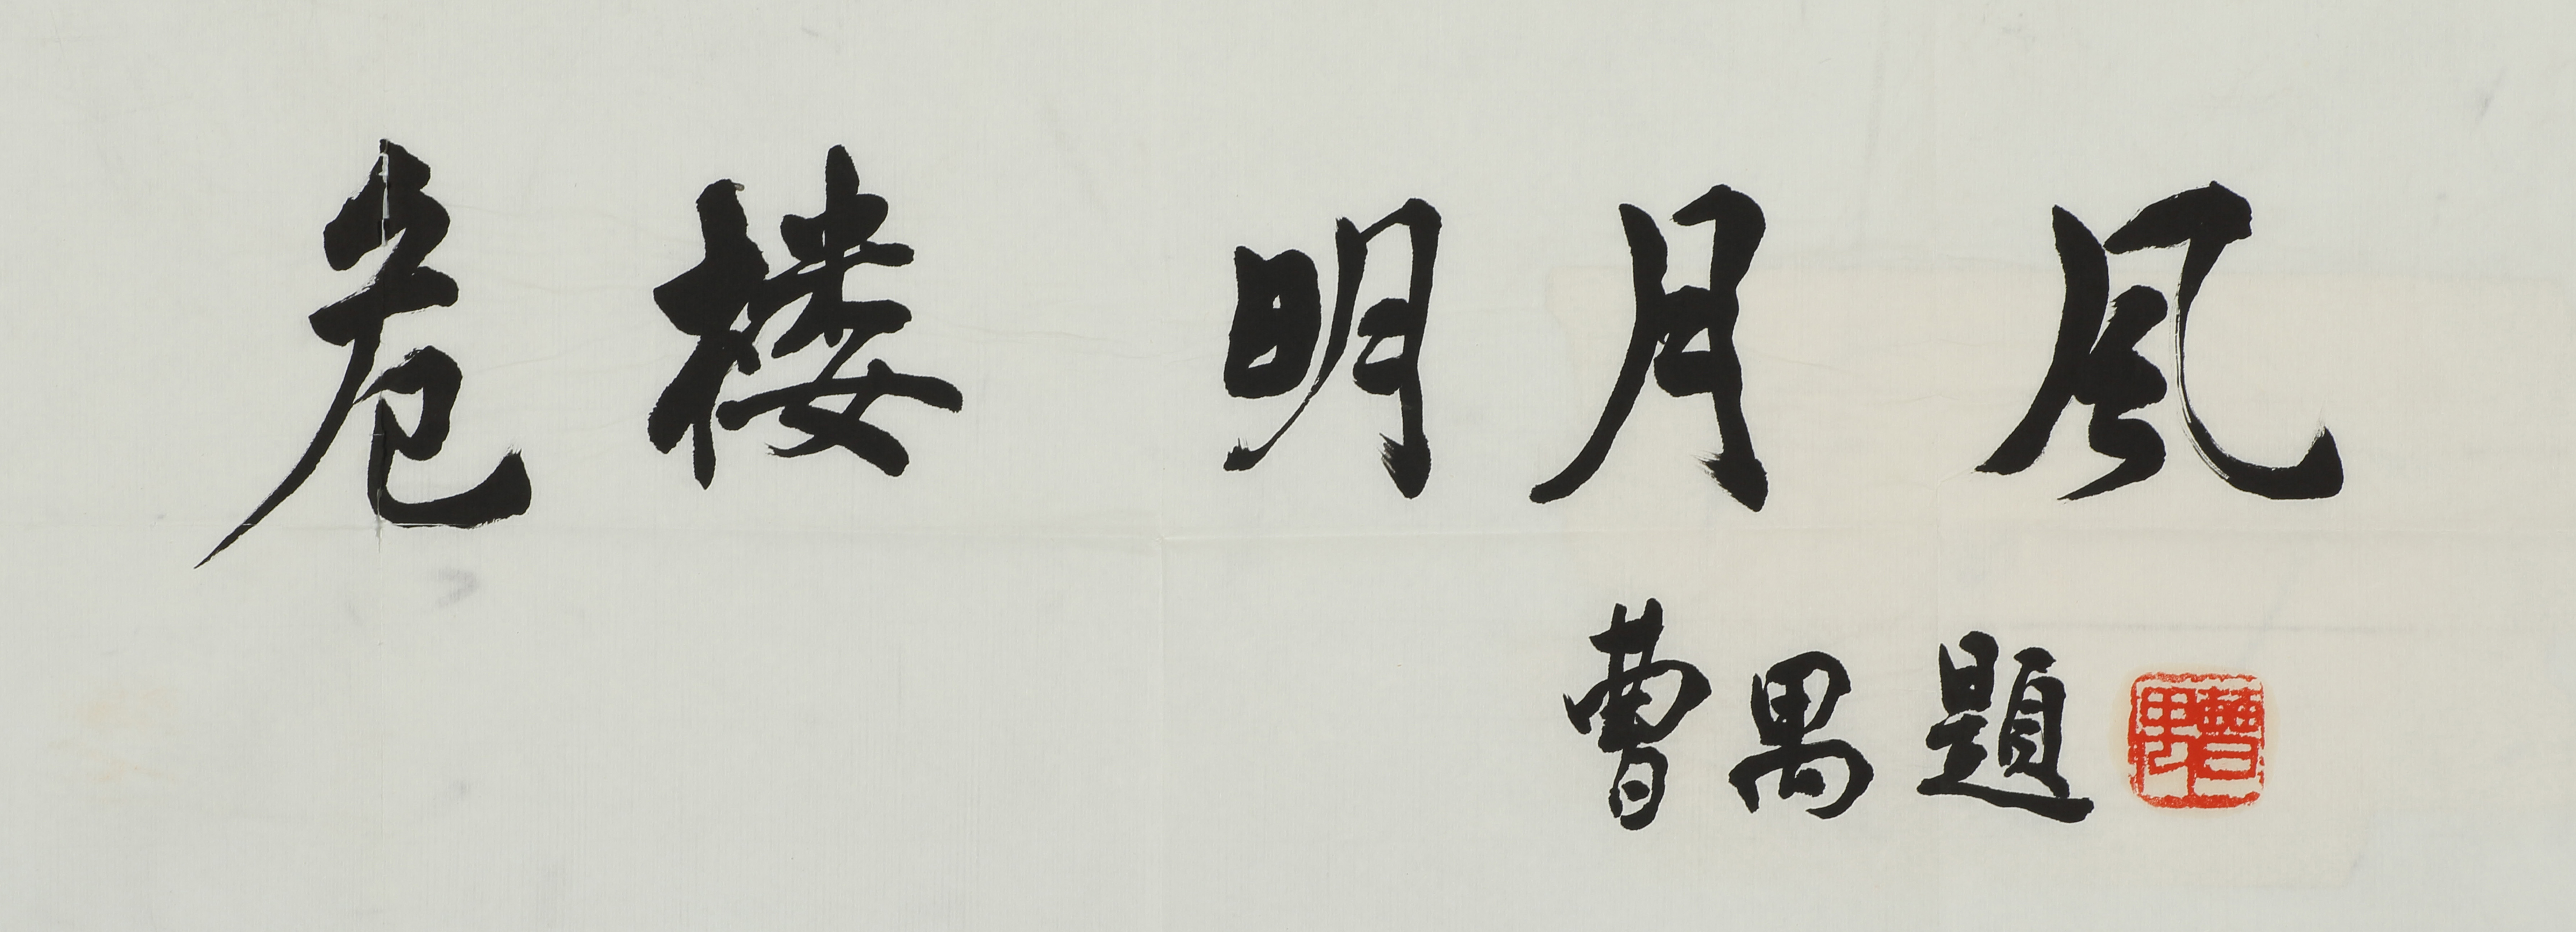 危楼明月风
曹禺題
曹禺